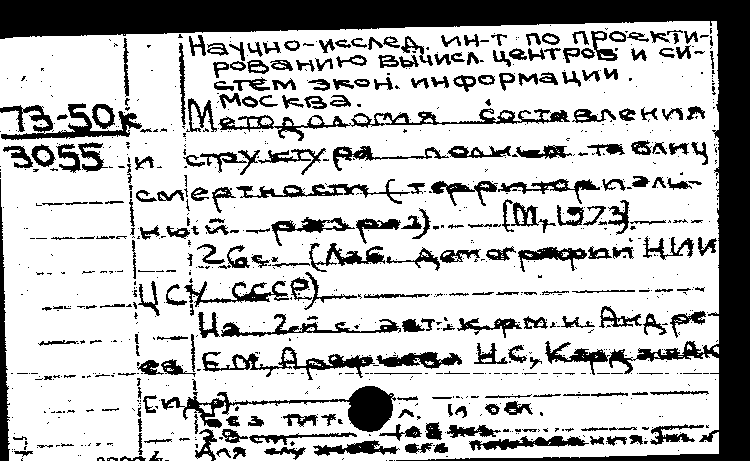 Научно-исслед. ин-т по проекти-
рованию вычисл. центров и си-
стем экон. информации.
Москва.
73-50к Методология составления
3055 и структура полных таблиц
смертности (территориаль-
ный разрез). [М., 1973].
26с. (Лаб. демографии НИИ
ЦСУ СССР)
На 2-й с. авт.: к.ф.м.н. Андре-
ев Е.М., Арефьева Н.С.,
[и др].
Без тит. л. и обл.
28 см. 108 экз.
Для служебного пользования. Экз. №